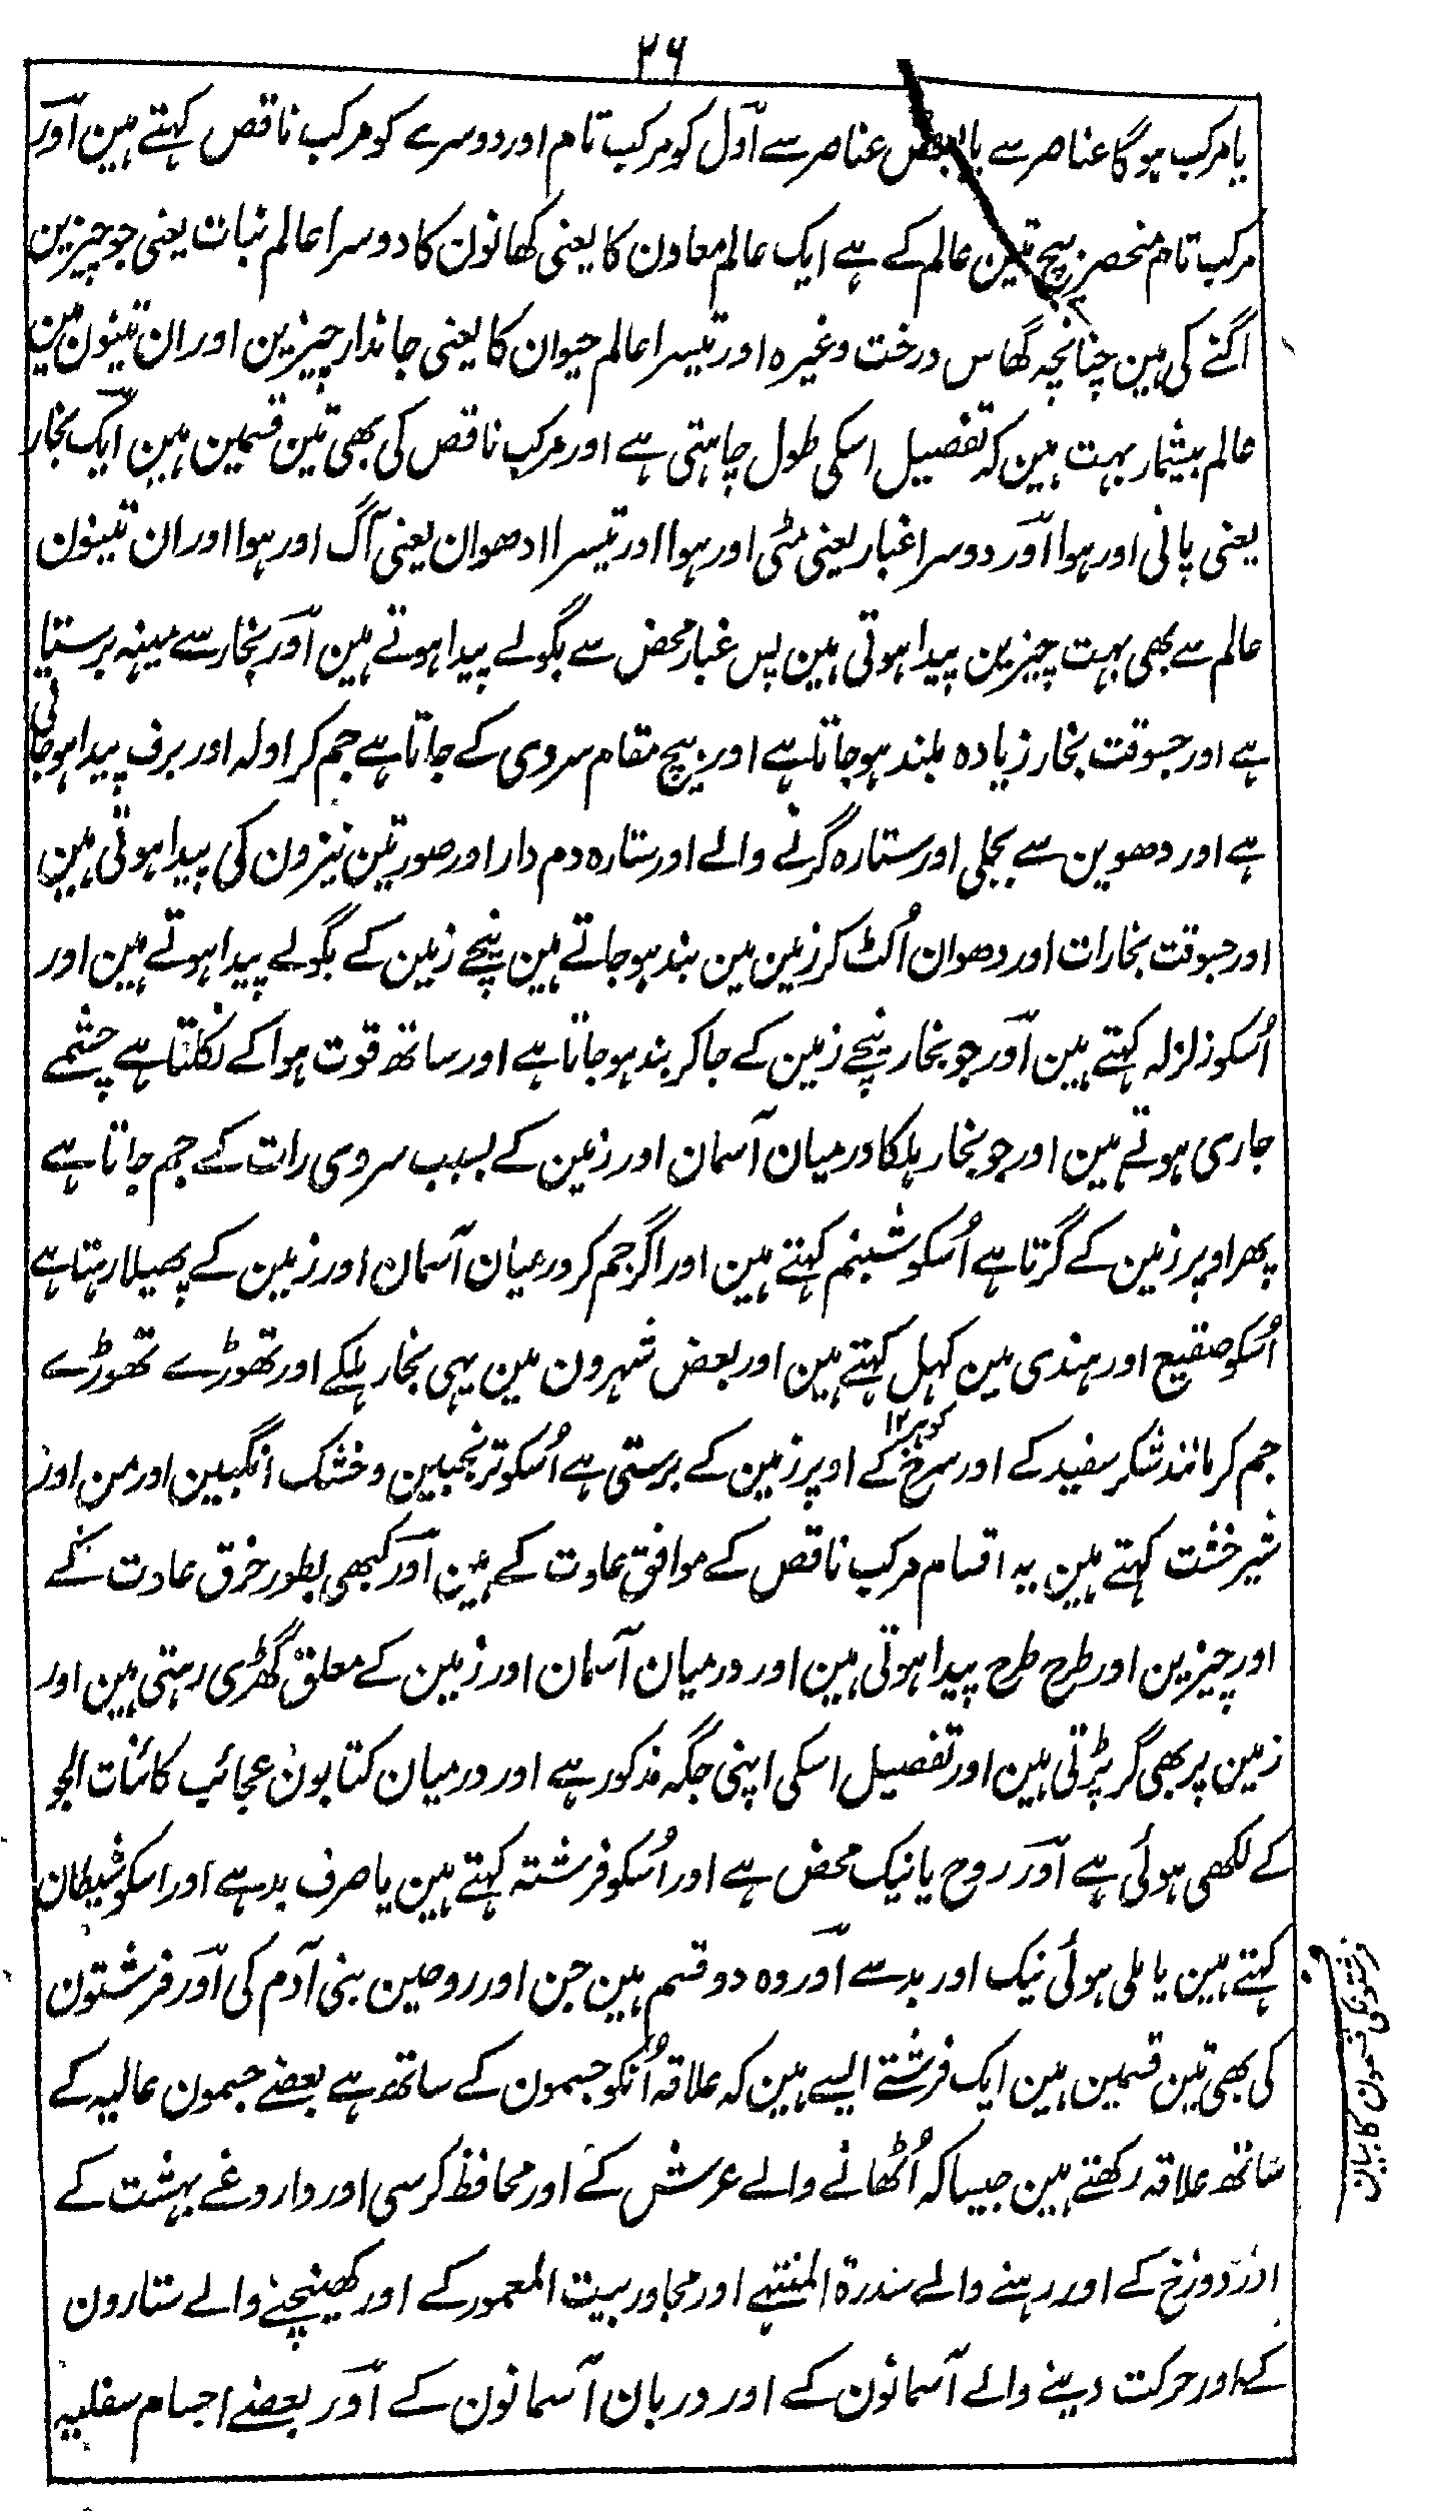 ۲۶
یا مرکب ہوگا عناصر سے یا بعض عناصر سے اوّل کو مرکب تام اور دوسرے کو مرکب ناقص کہتے ہین اور
مرکب تام منحصر بیچ تین عالم کے ہے ایک عالم معاون کا یعنی کھانون کا دوسرا عالم نبات یعنی جو چیزین
اگنے کی ہین چنانچہ گھاس درخت وغیرہ اور تیسرا عالم حیوان کا یعنی جاندار چیزین اور ان تینون مین
عالم بیشمار بہت ہین کہ تفصیل اسکی طول چاہتی ہے اور مرکب ناقص کی بھی تین قسمین ہین ایک بخار
یعنی پانی اور ہوا اور دوسرا غبار یعنی مٹی اور ہوا اور تیسرا ادھوان یعنی آگ اور ہوا اور ان تینون
عالم سے بھی بہت چیزین پیدا ہوتی ہین پس غبار محض سے بگولے پیدا ہوتے ہین اور بخار سے مینہ برستا
ہے اور جسوقت بخار زیادہ بلند ہو جاتا ہے اور بیچ مقام سردی کے جاتا ہے جم کر اولہ اور برف پیدا ہو جاتی
ہے اور دھوین سے بجلی اور ستارہ گرنے والے اور ستارہ دم دار اور صورتین نیزون کی پیدا ہوتی ہین
اور جسوقت بخارات اور دھوان اُلٹ کر زمین مین بند ہو جاتے ہین نیچے زمین کے بگولے پیدا ہوتے ہین اور
اُسکو زلزلہ کہتے ہین اور جو بخار نیچے زمین کے جا کر بند ہو جاتا ہے اور ساتھ قوت ہوا کے نکلتا ہے چشمے
جاری ہوتے ہین اور جو بخار ہلکا درمیان آسمان اور زمین کے بسبب سردی رات کے جم جاتا ہے
پھر اوپر زمین کے گرتا ہے اُسکو شبنم کہتے ہین اور اگر جم کر درمیان آسمان اور زمین کے پھیلا رہتا ہے
اُسکو صقیع اور ہندی مین کہل کہتے ہین اور بعض شہرون مین یہی بخار ہلکے اور تھوڑے تھوڑے
کوہر ۱۲
جم کر مانند شکر سفید کے اور سرخ کے اوپر زمین کے برستی ہے اُسکو ترنجبین و خشک انگبین اور من اور
شیرخشت کہتے ہین یہ اقسام مرکب ناقص کے موافق عادت کے ہین اور کبھی بطور خرق عادت کے
اور چیزین اور طرح طرح پیدا ہوتی ہین اور درمیان آسمان اور زمین کے معلق گھڑی رہتی ہین اور
زمین پر بھی گر پڑتی ہین اور تفصیل اسکی اپنی جگہ مذکور ہے اور درمیان کتابون عجائب کائنات الجو
کے لکھی ہوئی ہے اور روح یا نیک محض ہے اور اُسکو فرشتہ کہتے ہین یا صرف بد ہے اور اسکو شیطان
کہتے ہین یا ملی ہوئی نیک اور بد سے اور وہ دو قسم ہین جن اور روحین بنی آدم کی اور فرشتون
کی بھی تین قسمین ہین ایک فرشتے ایسے ہین کہ علاقہ اُنکو جسمون کے ساتھ ہے بعضے جسمون عالیہ کے
ساتھ علاقہ رکھتے ہین جیسا کہ اُٹھانے والے عرش کے اور محافظ کرسی اور داروغے بہشت کے
اور دوزخ کے اور رہنے والے سدرۃ المنتہے اور مجاور بیت المعمور کے اور کھینچنے والے ستارون
کے اور حرکت دینے والے آسمانون کے اور دربان آسمانون کے اور بعضے اجسام سفلیہ
فرشتون کی قسمون کا بیان